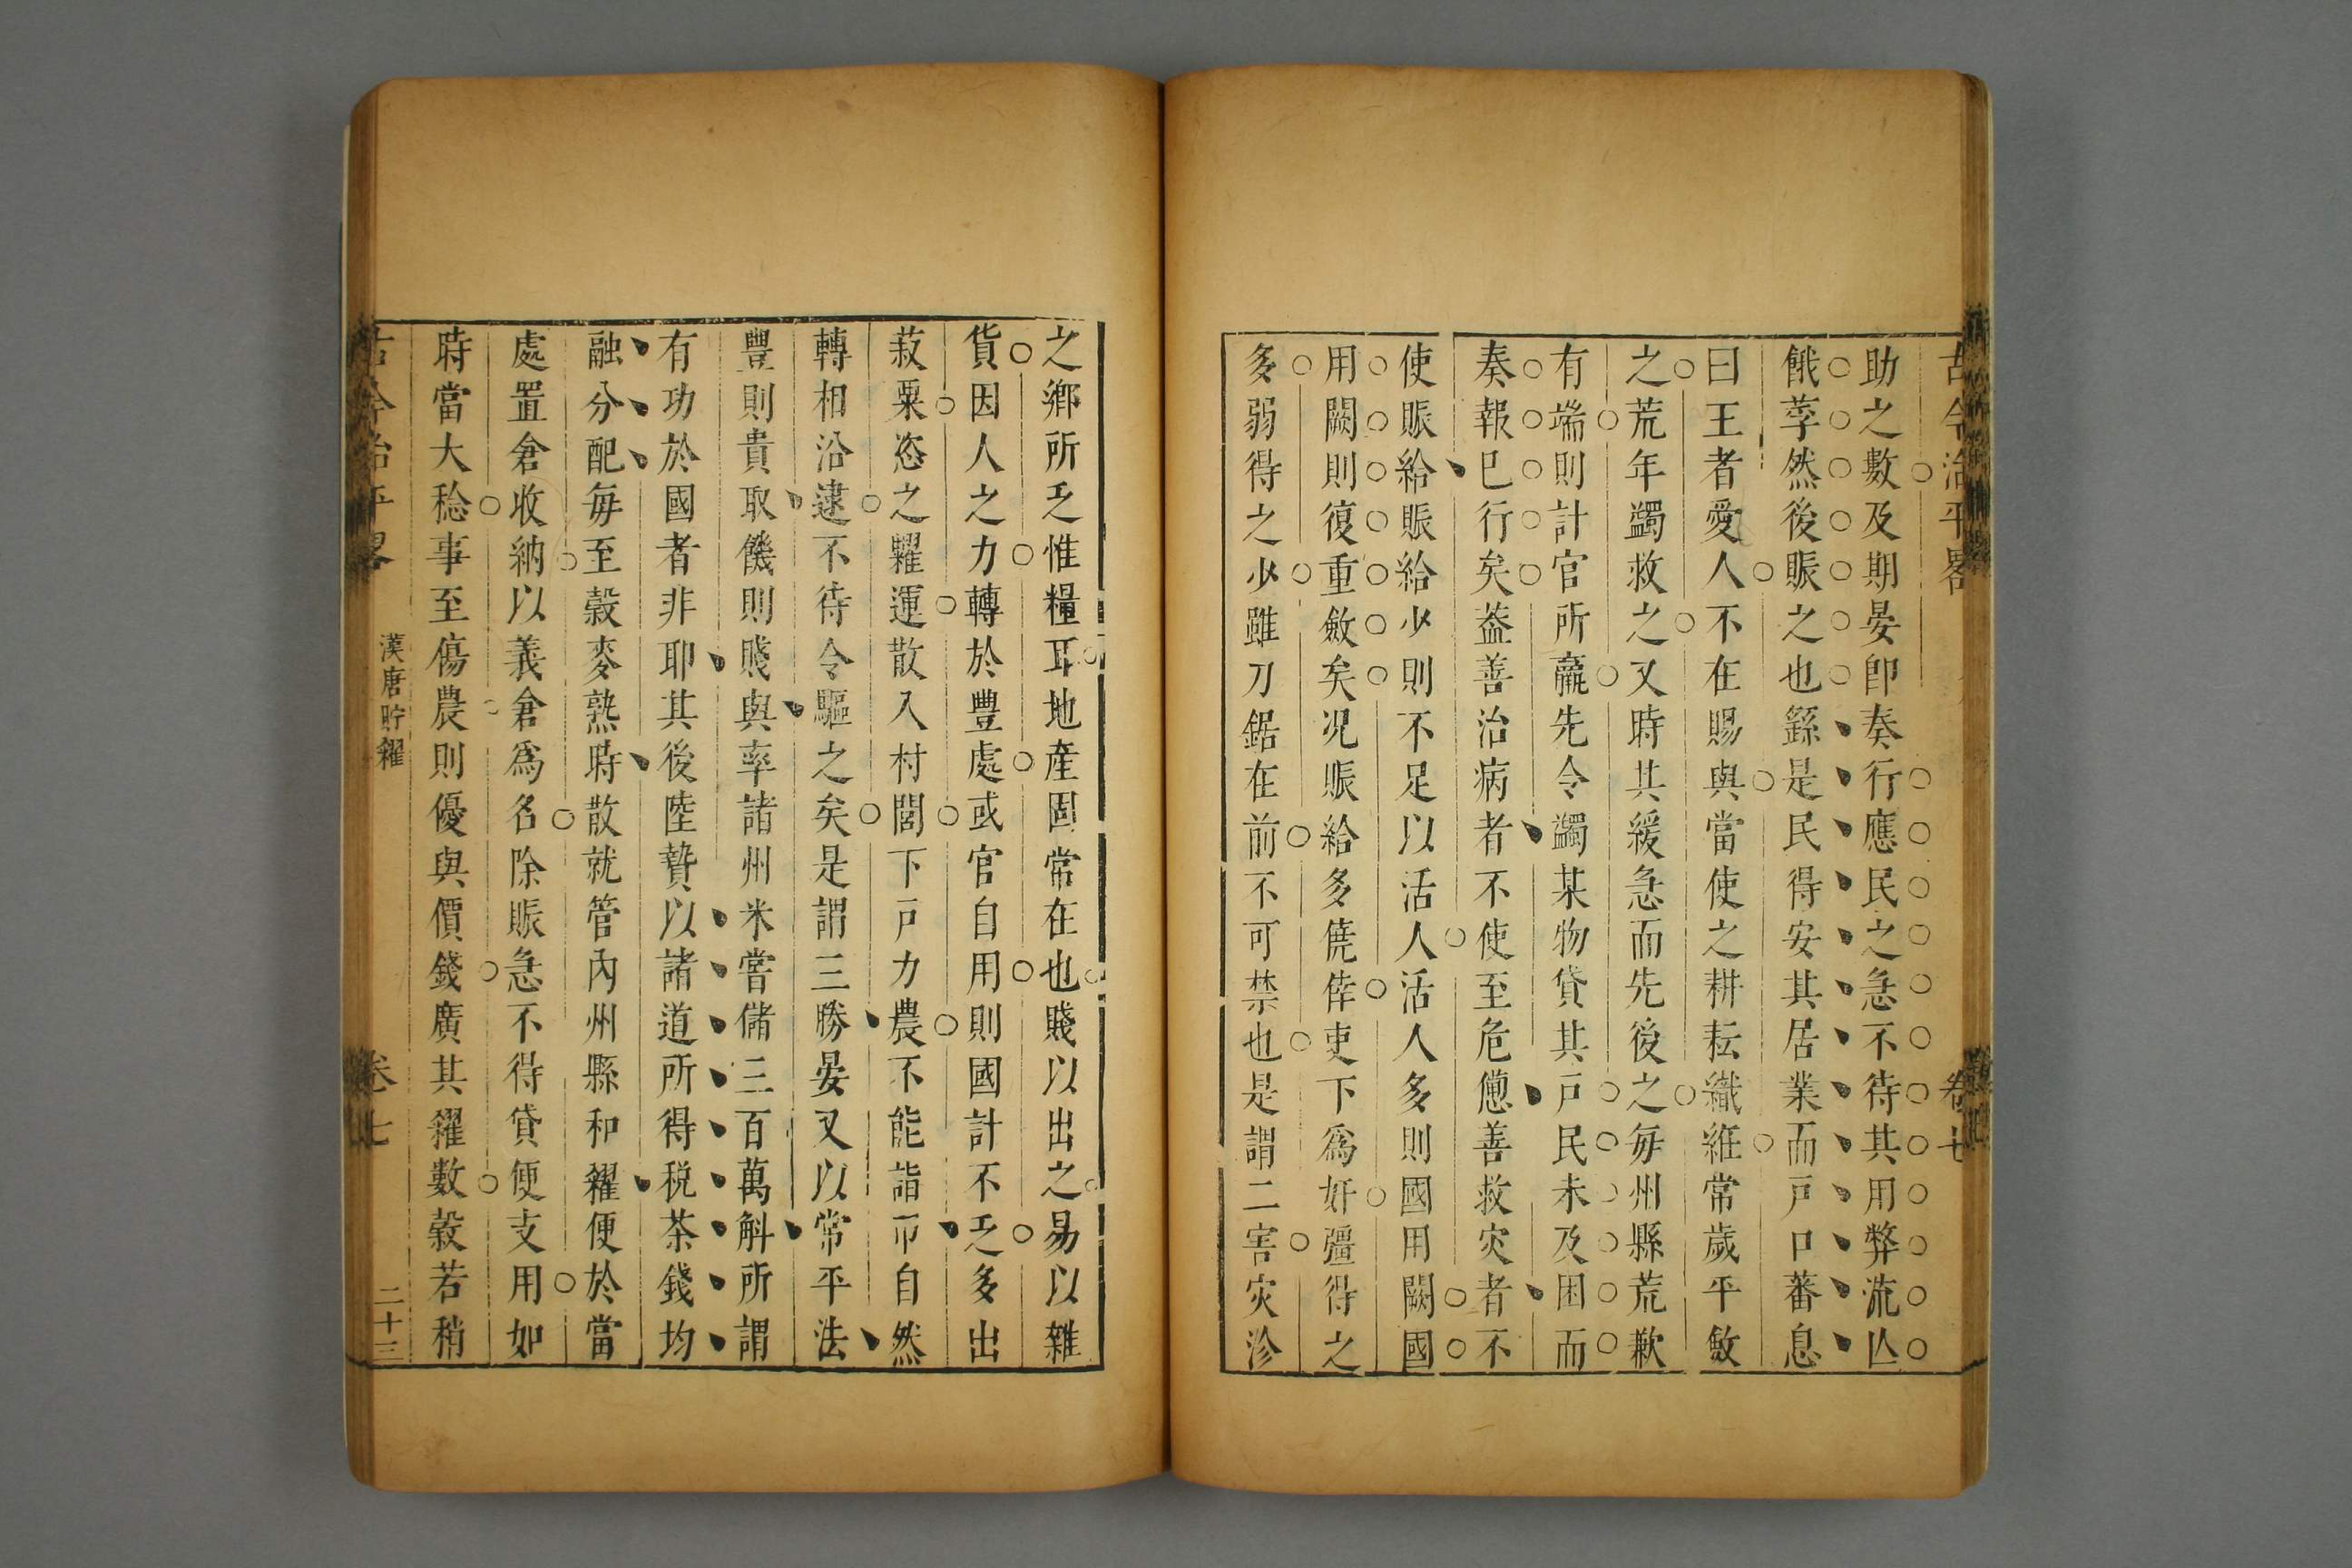 古今治平畧 卷七
助之數及期晏卽奏行應民之急不待其用弊流亾
餓莩然後賑之也繇是民得安其居業而戸口蕃息
曰王者愛人不在賜與當使之耕耘織絍常歲平斂
之荒年蠲救之又時其緩急而先後之每州縣荒歉
有端則計官所贏先令蠲某物貸某戸民未及困而
奏報巳行矣葢善治病者不使至危憊善救灾者不
使賑給賑給少則不足以活人活人多則國用闕國
用闕則復重斂矣况賑給多僥倖吏下爲奸彊得之
多弱得之少雖刀鋸在前不可禁也是謂二害灾沴
之鄉所乏惟糧耳地產固常在也賤以出之易以雜
貨因人之力轉於豐處或官自用則國計不乏多出
菽粟恣之糶運散入村閭下戸力農不能詣市自然
轉相沿逮不待令驅之矣是謂三勝晏又以常平法
豐則貴取饑則賤與率諸州米嘗儲三百萬斛所謂
有功於國者非耶其後陸贄以諸道所得税茶錢均
融分配每至穀麥熟時散就管內州縣和糴便於當
處置倉收納以義倉爲名除賑急不得貸便支用如
時當大稔事至傷農則優與價錢廣其糴數穀若稍
古今治平畧 漢唐貯糴 卷七 二十三